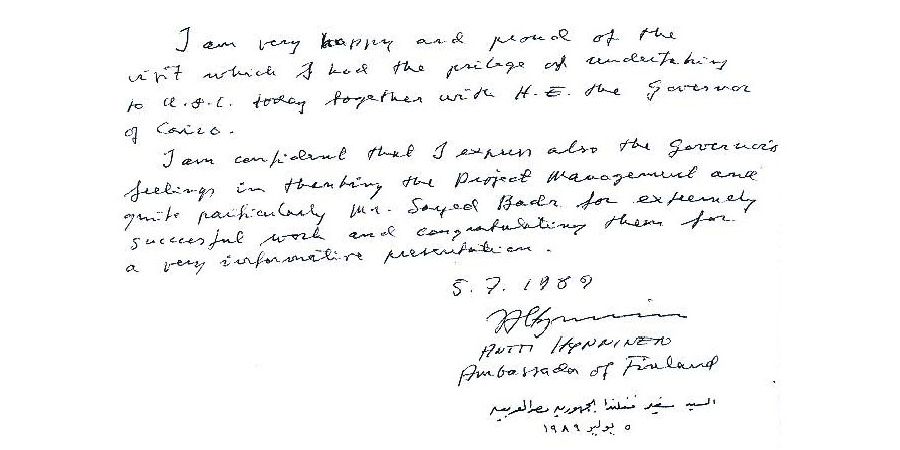 I am very happy and proud of the
visit which I had the prilege of undertaking
to A.S.C. today together with H.E. the Governor
of Cairo.
I am confident that I express also the Governor's
feelings in thanking the Project Management and
quite particularly Mr. Sayed Badr for extremely
successful work and congratulating them for
a very informative presentation.
5.7.1989
ANTTI HYNNINEN
Ambassador of Finland
السيد سفير فنلندا بجمهورية مصر العربية
٥ يوليو ١٩٨٩